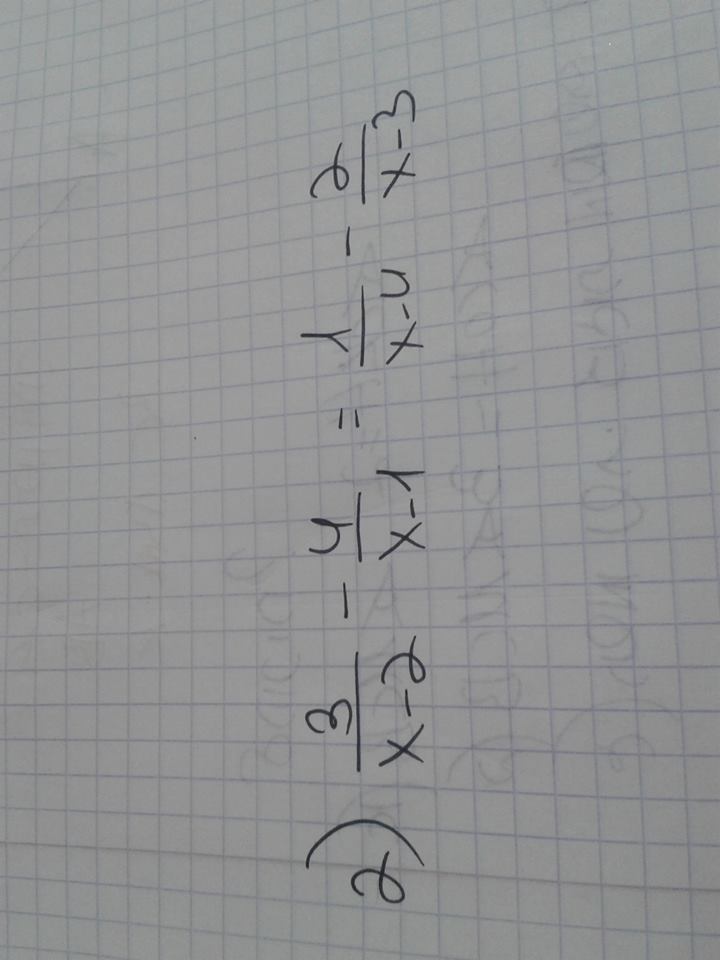 2) 3/(x-2) - 4/(x-1) = 1/(x-4) - 2/(x-3)